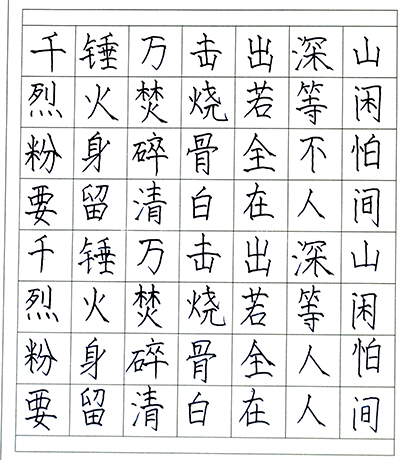 千锤万击出深山
烈火焚烧若等闲
粉身碎骨全不怕
要留清白在人间
千锤万击出深山
烈火焚烧若等闲
粉身碎骨全人怕
要留清白在人间